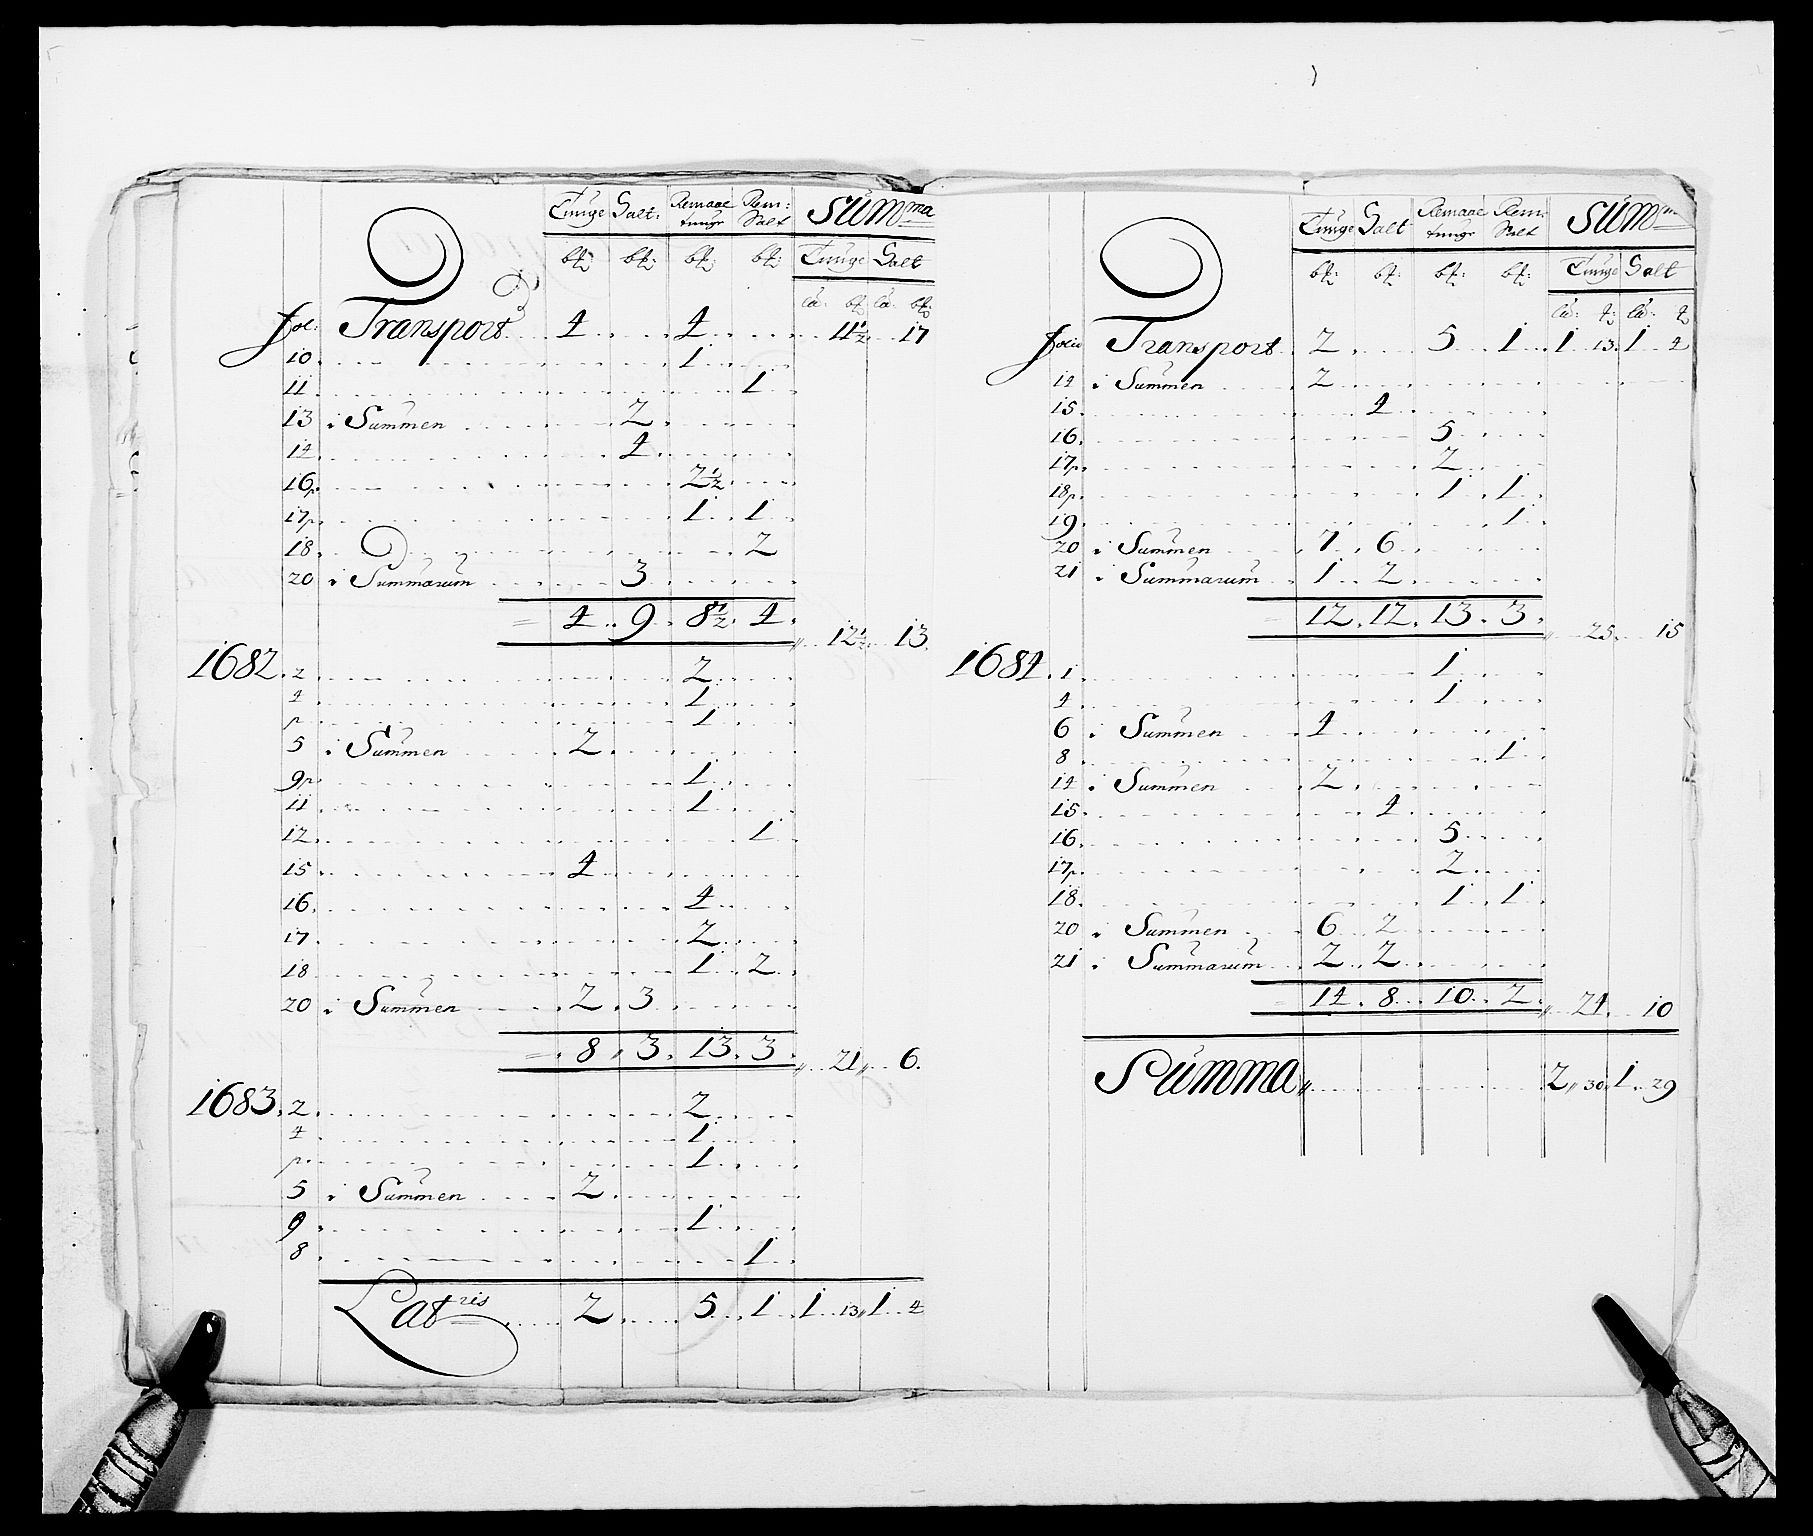 Tunge Salt: Remane tunge Rem: Salt SUMma
Tunge Salt
fol: Transport 4 4 11½ 17
10 1
11 1
13 i Summen 2
14 4
16 2½
17 1 1
18 2
20 i Summarum 3
4 9 8½ 4
12½ 13
1682 2 2
4 1
1
5 i Summen 2
9 1
11 1
12 1
15 4
16 4
17 2
18 1 2
20 i Summen 2 3
8 3 13 3
21 6
1683 2 2
4 1
1
5 i Summen 2
9 1
8 1
Latris 2 5 1 1 13 1 4
Tunge Salt Remane tunge Rem: Salt SUM
Tunge Salt
folio Transport 2 5 1 1 13 1 4
14 i Summen 2
15 4
16 5
17 2
18 1 1
19 1
20 i Summen 7 6
21 i Summarum 1 2
12 12 13 3
25 15
1684 1 1
4 1
6 i Summen 4
8 1
14 i Summen 2
15 4
16 5
17 2
18 1 1
20 i Summen 6 2
21 i Summarum 2 2
14 8 10 2
24 10
Summa 2 30 1 29